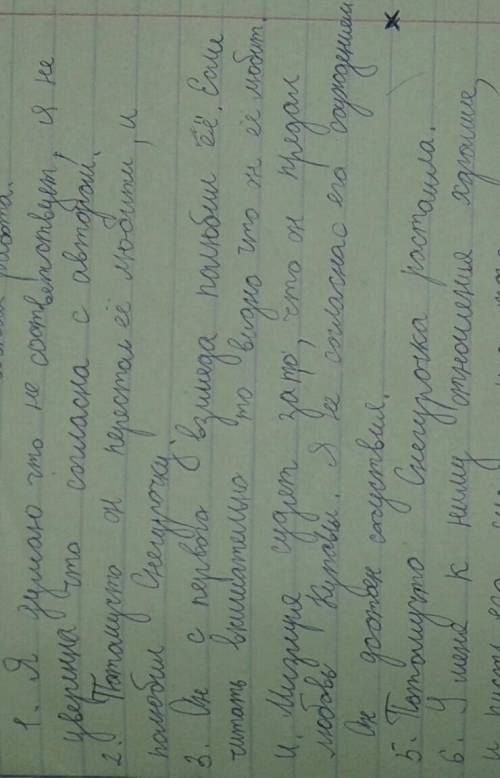 работа.
1. Я думаю что не соответствует, я не
уверина что согласна с автором.
2. Потамушто он перестал её любити, и
полюбил Снегурочку.
3. Он с первова взгляда полюбил её. Если
читать внимательно то видно что он её любит.
4. Мизгиря судят за то, что он предал
любовь Купавы. Я не согласна с его осуждением
Он достоен сочуствия.
5. Потамушто Снегурочка растаила.
6. У меня к нему отношения хорошие,